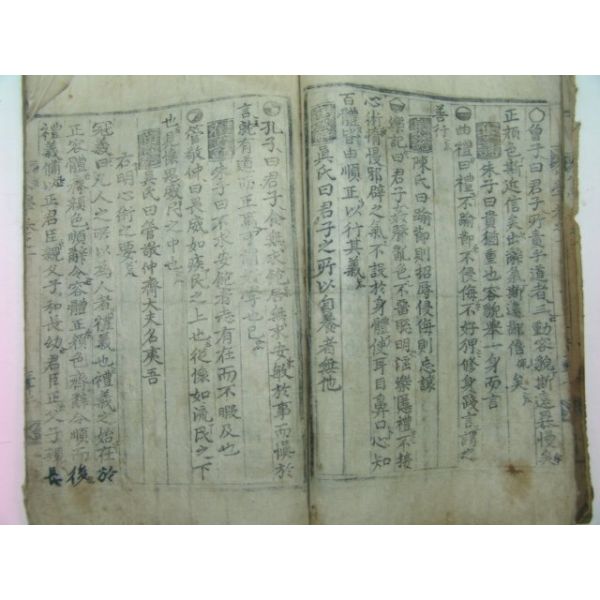 曾子曰君子所貴乎道者三動容貌斯遠暴慢矣
正顔色斯近信矣出辭氣斯遠鄙倍矣
朱子曰貴猶重也容貌擧一身而言
曲禮曰禮不踰節不侵侮不好狎修身踐言謂之
善行
陳氏曰踰節則招辱侵侮則忘讓
樂記曰君子姦聲亂色不留聰明淫樂慝禮不接
心術惰慢邪辟之氣不設於身體使耳目鼻口心知
百體皆由順正以行其義
吳氏曰君子之所以自養者無他
孔子曰君子食無求飽居無求安敏於事而愼於
言就有道而正焉可謂好學也已
朱子曰不求安飽者志有在而不暇及也
管敬仲曰畏威如疾民之上也從懷如流民之下
也見懷思威民之中也
吳氏曰管敬仲齊大夫名夷吾
右明心術之要
冠義曰凡人之所以爲人者禮義也禮義之始在於
正容體齊顔色順辭令容體正顔色齊辭令順而後
禮義備以正君臣親父子和長幼君臣正父子親長